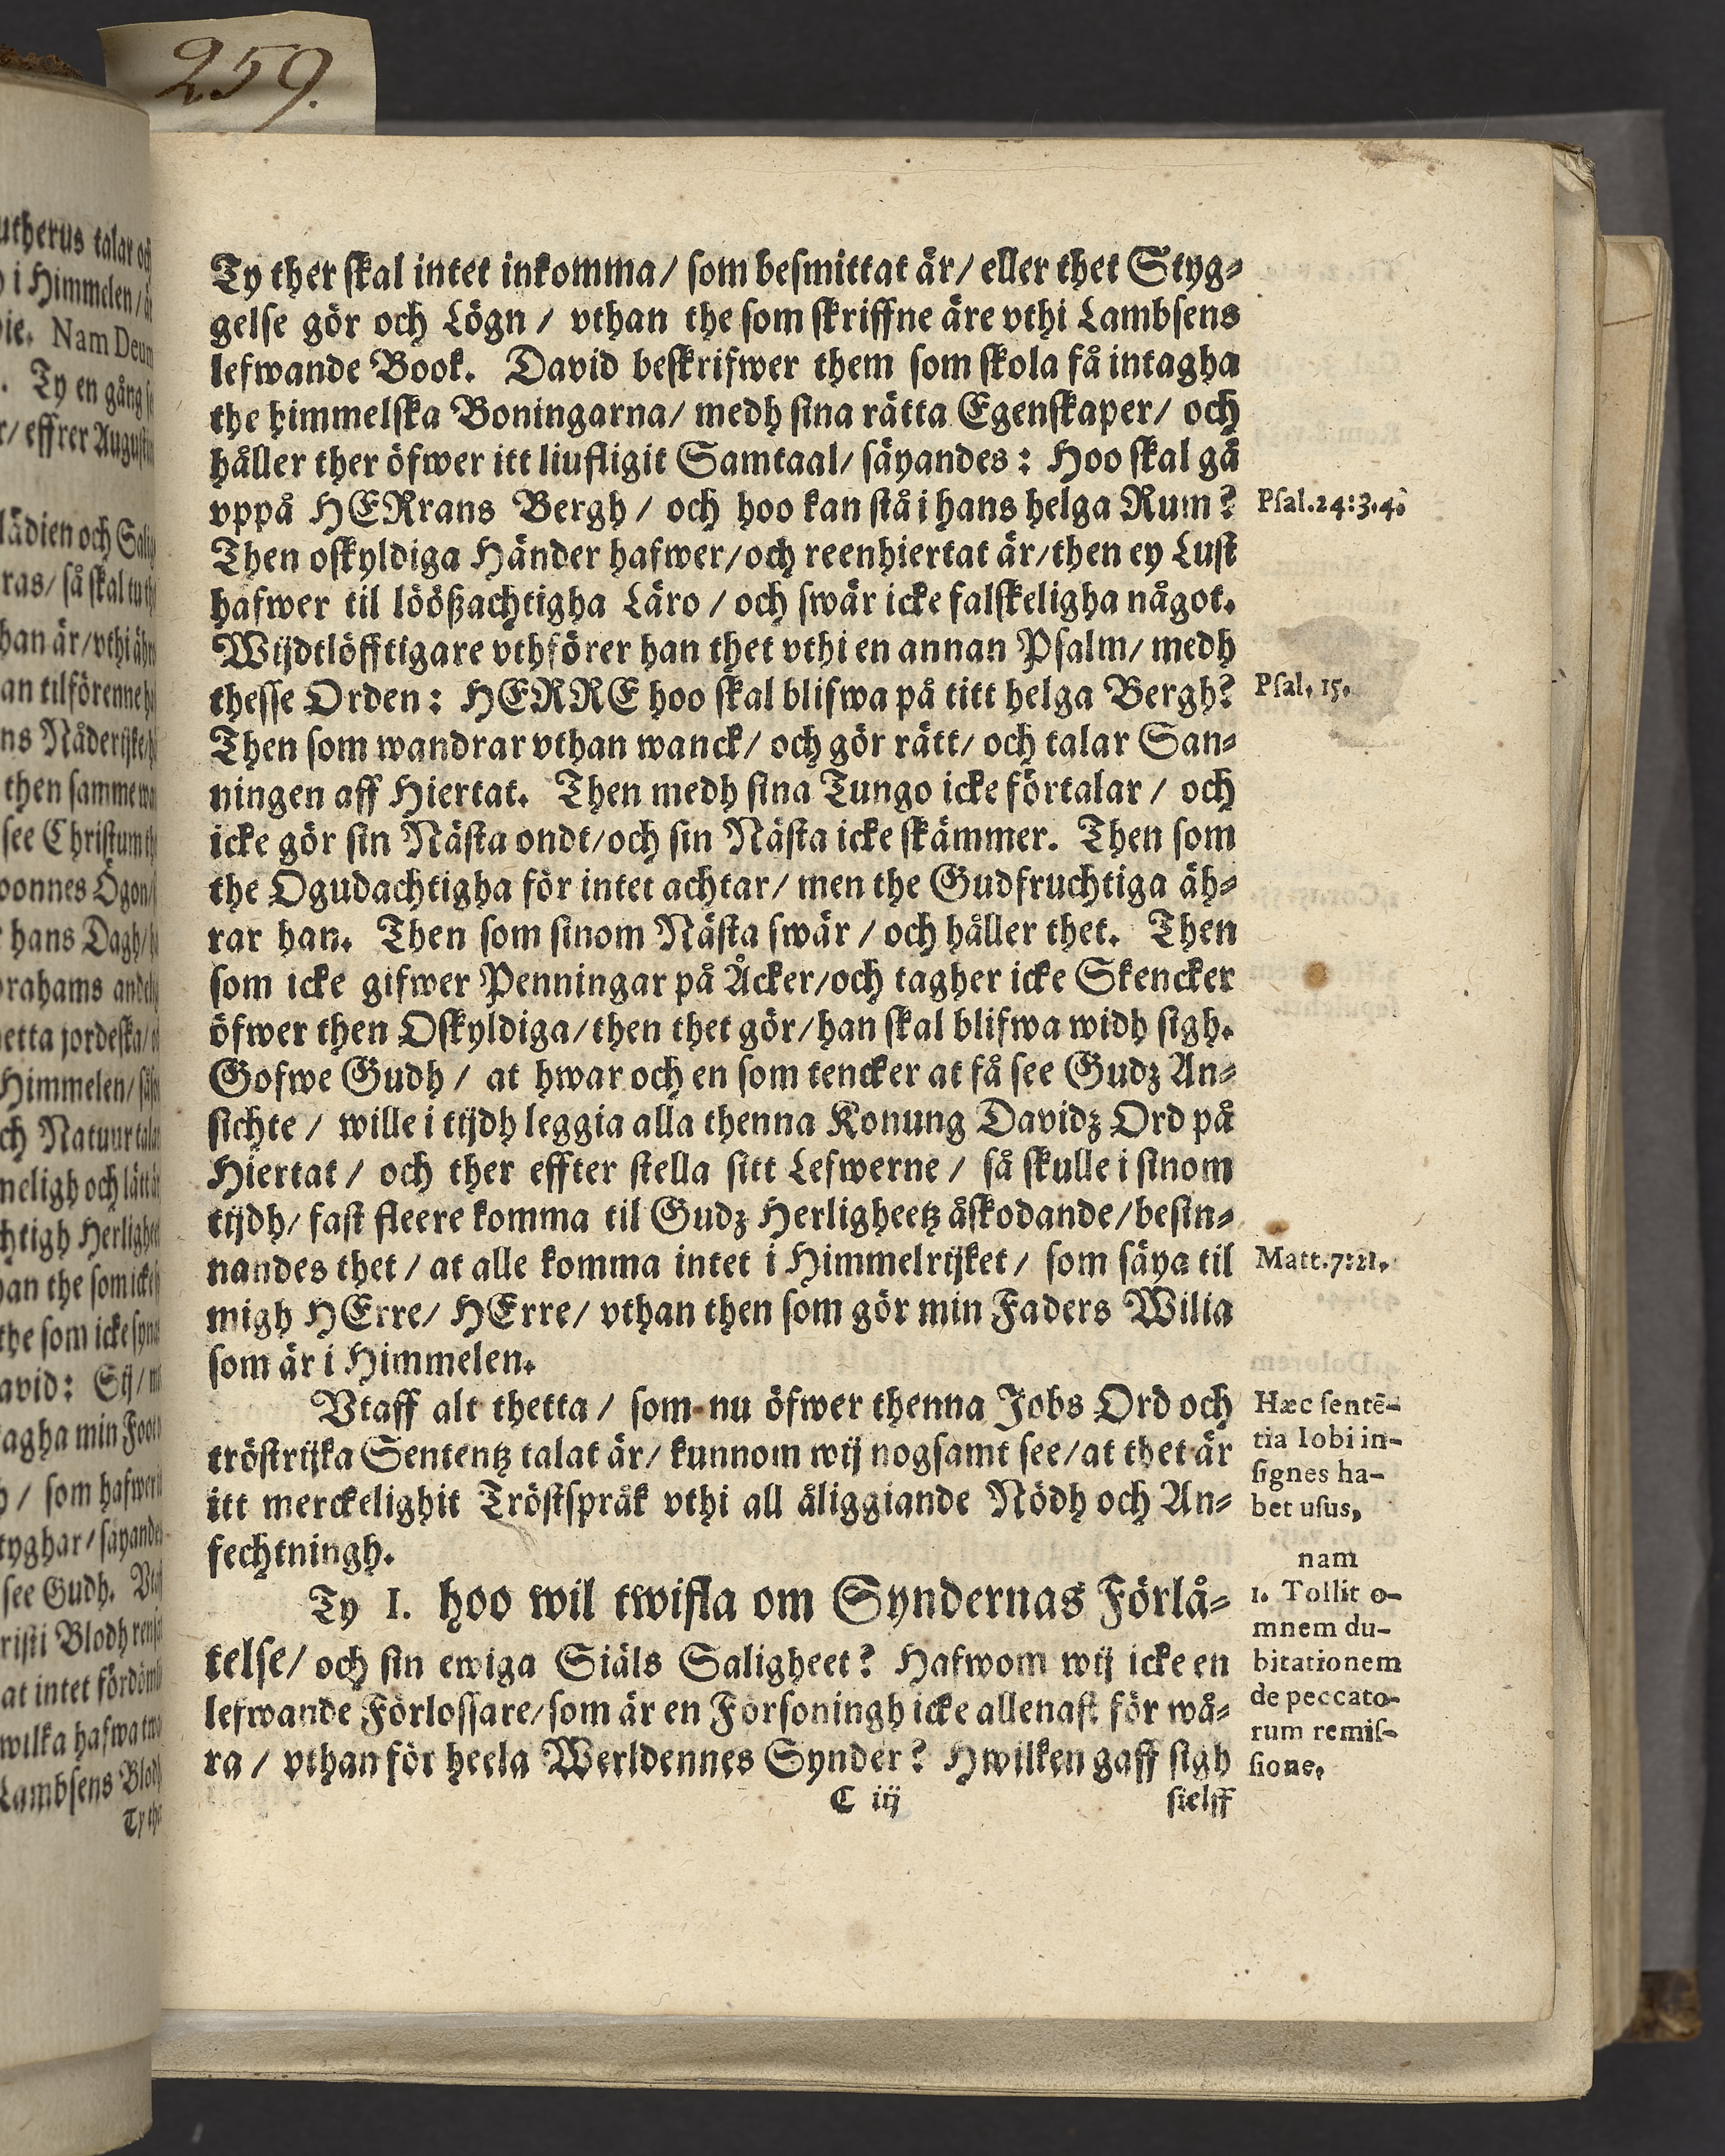 259.
Ty ther skal intet inkomma / som besmittat är / eller thet Styg-
gelse gör och Lögn / vthan the som skriffne äre vthi Lambsens
lefwande Book. David beskrifwer them som skola få intagha
the himmelska Boningarna / medh sina rätta Egenskaper / och
håller ther öfwer itt liufligit Samtaal / säyandes : Hoo skal gå
vppå HERrans Bergh / och hoo kan stå i hans helga Rum ?
Psal. 24:3.4.
Then oskyldiga Händer hafwer / och reenhiertat är / then ey Lust
hafwer til löößachtigha Läro / och swär icke falskeligha något.
Wijdtlöfftigare vthförer han thet vthi en annan Psalm / medh
thesse Orden : HERRE hoo skal blifwa på titt helga Bergh?
Psal. 15.
Then som wandrar vthan wanck / och gör rätt / och talar San-
ningen aff Hiertat. Then medh sina Tungo icke förtalar / och
icke gör sin Nästa ondt / och sin Nästa icke skämmer. Then som
the Ogudachtigha för intet achtar / men the Gudfruchtiga äh-
rar han. Then som sinom Nästa swär / och håller thet. Then
som icke gifwer Penningar på Åcker / och tagher icke Skencker
öfwer then Oskyldiga / then thet gör / han skal blifwa widh sigh.
Gofwe Gudh / at hwar och en som tencker at få see Gudz An-
sichte / wille i tijdh leggia alla thenna Konung Davidz Ord på
Hiertat / och ther effter stella sitt Lefwerne / så skulle i sinom
tijdh / fast fleere komma til Gudz Herligheetz åskodande / besin-
nandes thet / at alle komma intet i Himmelrijket / som säya til
Matt. 7:21.
migh HErre / HErre / vthan then som gör min Faders Wilia
som är i Himmelen.
Vtaff alt thetta / som nu öfwer thenna Jobs Ord och
tröstrijka Sententz talat är / kunnom wij nogsamt see / at thet är
itt merckelighit Tröstspråk vthi all åliggiande Nödh och An-
fechtningh.
Hæc sentē-
tia Iobi in-
signes ha-
bet usus,
nam
Ty 1. hoo wil twifla om Syndernas Förlå-
telse / och sin ewiga Siäls Saligheet ? Hafwom wij icke en
lefwande Förlossare / som är en Försoningh icke allenast för wå-
ra / vthan för heela Werldennes Synder ? Hwilken gaff sigh
1. Tollit o-
mnem du-
bitationem
de peccato-
rum remis-
sione.
C iij
sielff